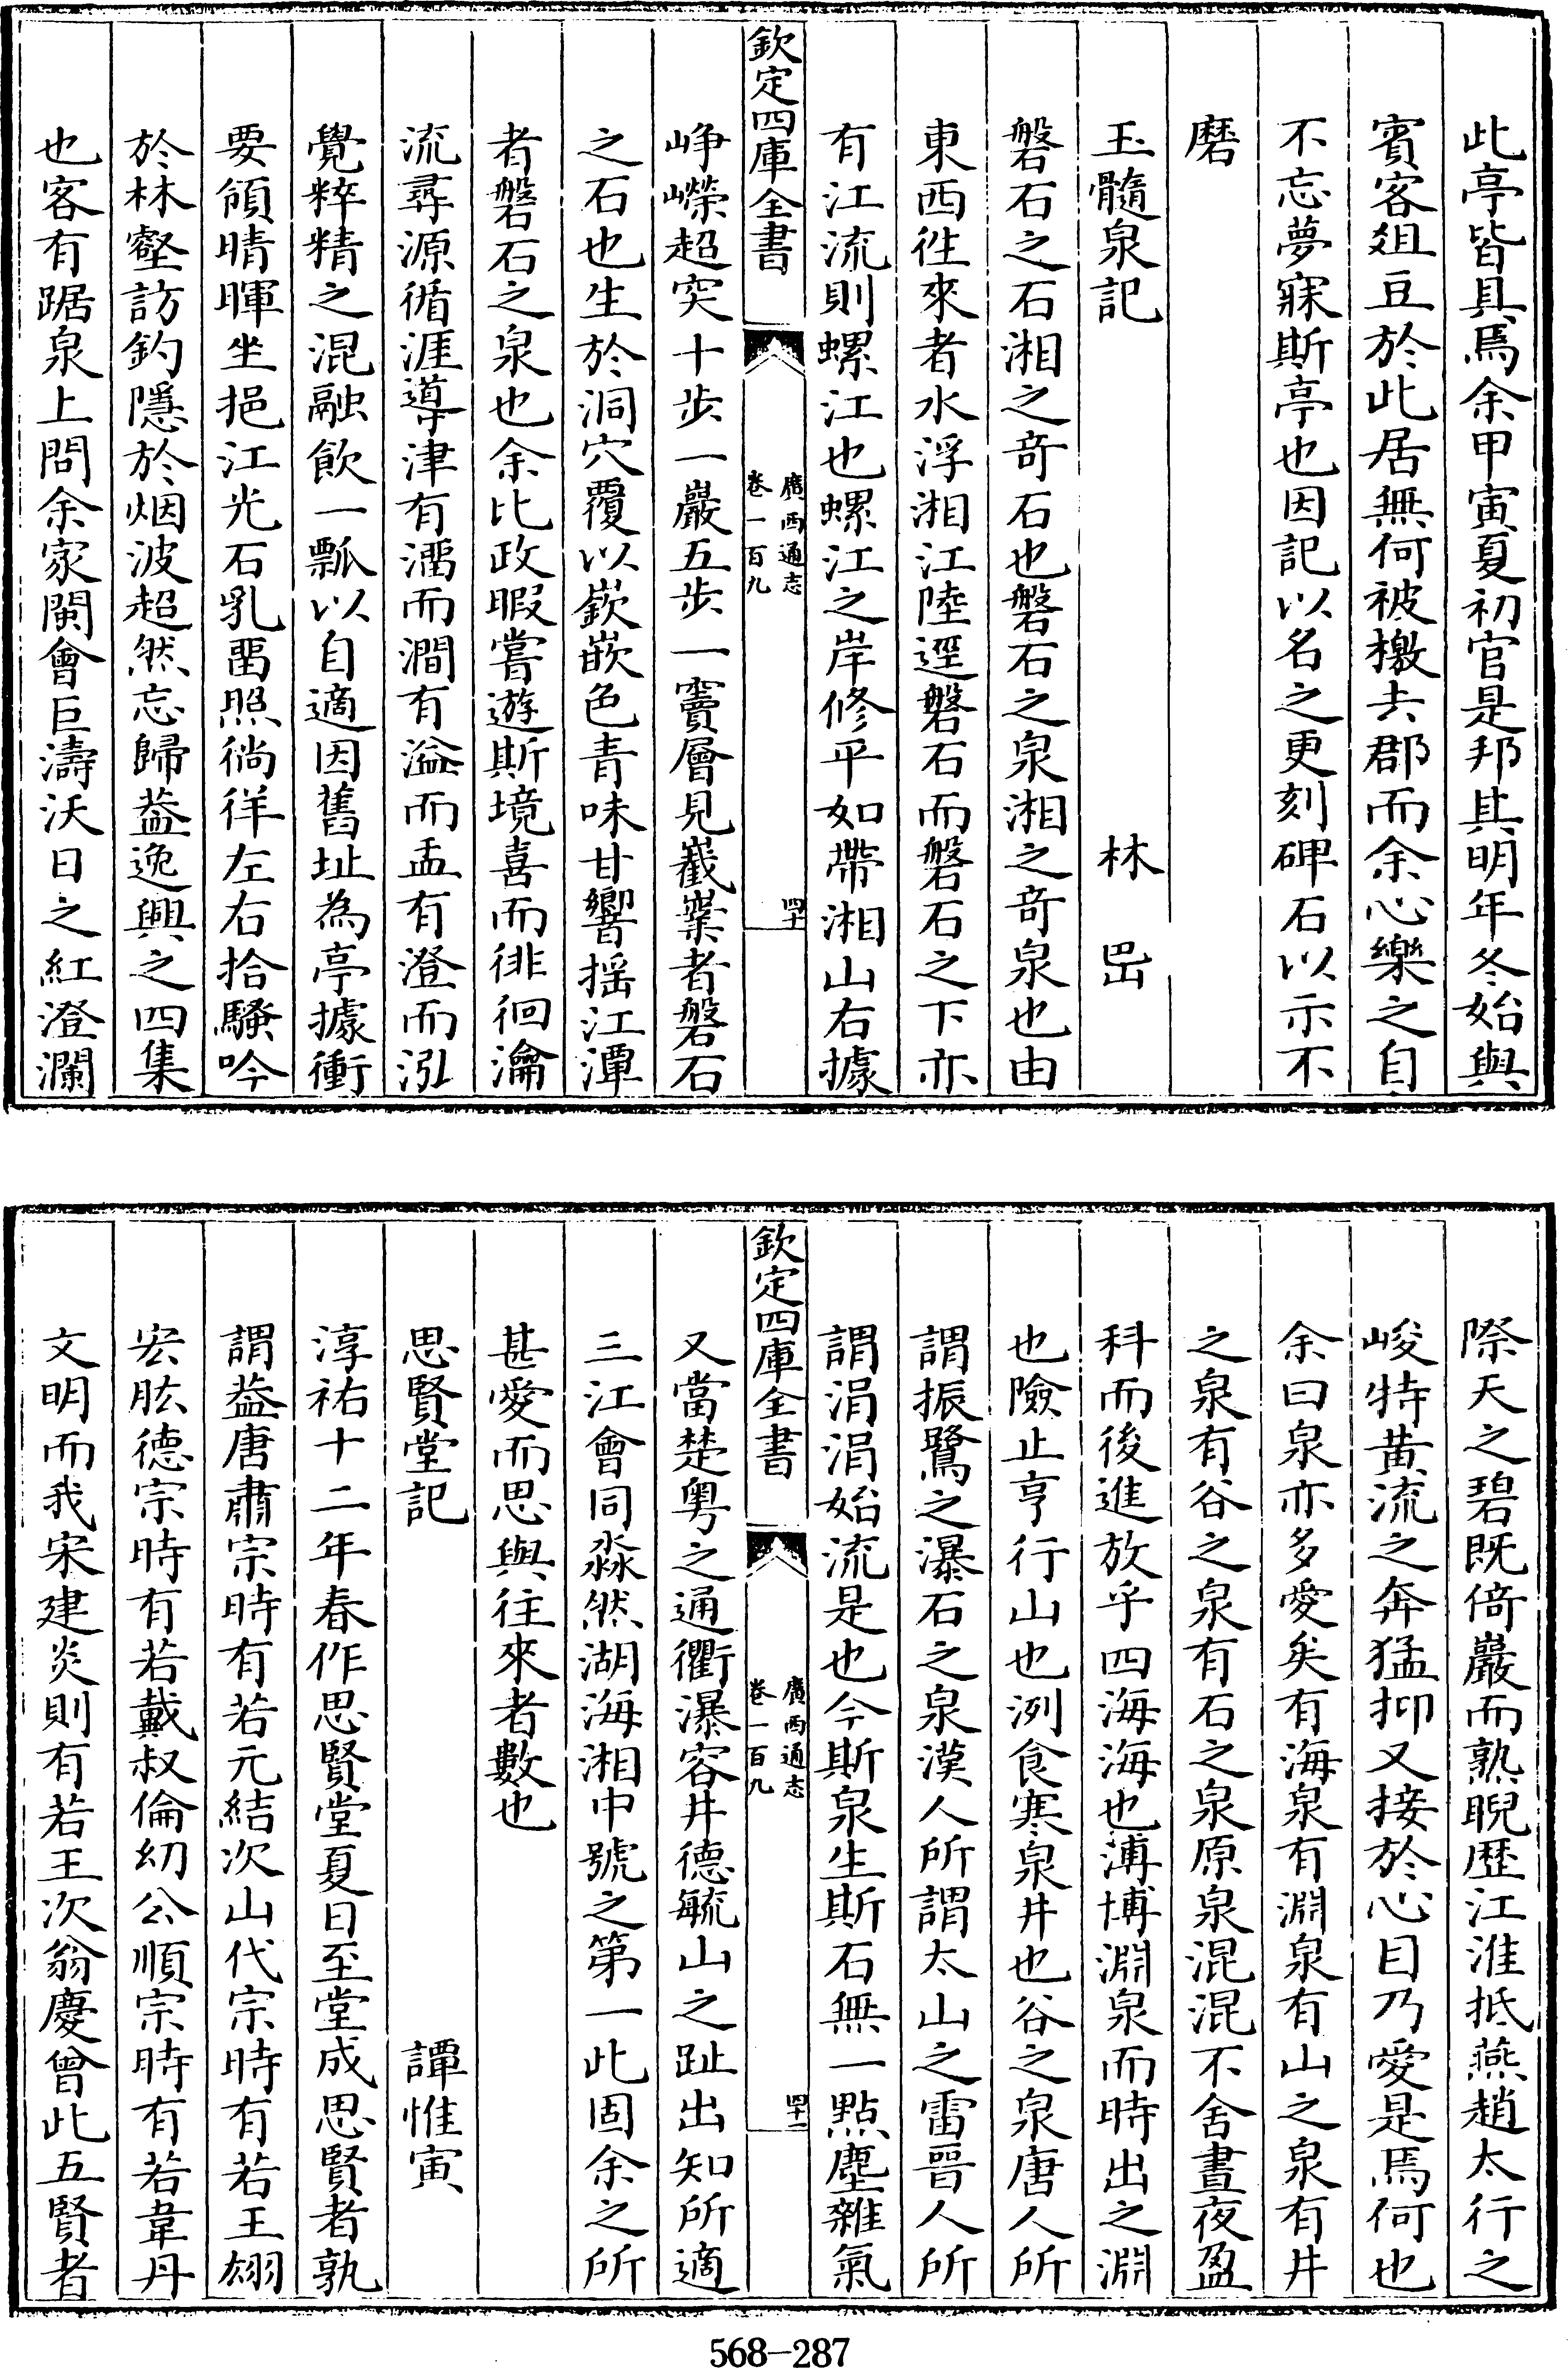 此亭皆具焉余甲寅夏初官是邦其明年冬始與
賓客俎豆於此居無何被檄去郡而余心樂之自
不忘夢寐斯亭也因記以名之更刻碑石以示不
磨
玉髓泉記　林岊
磐石之石湘之奇石也磐石之泉湘之奇泉也由
東西徃來者水浮湘江陸逕磐石而磐石之下亦
有江流則螺江也螺江之岸修平如帶湘山右據
欽定四庫全書
廣西通志
卷一百九
四十
崢嶸超突十步一巖五步一竇層見巀嶪者磐石
之石也生於洞穴覆以嶔嵌色青味甘響揺江潭
者磐石之泉也余比政暇嘗遊斯境喜而徘徊瀹
流尋源循涯導津有㵎而澗有溢而盂有澄而泓
覺粹精之混融飲一瓢以自適因舊址為亭據衝
要領晴暉坐挹江光石乳畱照徜徉左右拾騷吟
於林壑訪釣隱於烟波超然忘歸葢逸興之四集
也客有踞泉上問余家閩會巨濤沃日之紅澄瀾
際天之碧既倚巖而熟睨歴江淮抵燕趙太行之
峻特黄流之奔猛抑又接於心目乃愛是焉何也
余曰泉亦多愛矣有海泉有淵泉有山之泉有井
之泉有谷之泉有石之泉原泉混混不舍晝夜盈
科而後進放乎四海海也溥博淵泉而時出之淵
也險止亨行山也洌食寒泉井也谷之泉唐人所
謂振鷺之瀑石之泉漢人所謂太山之雷晉人所
謂涓涓始流是也今斯泉生斯石無一點塵雜氣
欽定四庫全書
廣西通志
卷一百九
四十一
又當楚粤之通衢瀑容井德毓山之趾出知所適
三江會同淼然湖海湘中號之第一此固余之所
甚愛而思與往來者數也
思賢堂記　譚惟寅
淳祐十二年春作思賢堂夏日至堂成思賢者孰
謂葢唐肅宗時有若元結次山代宗時有若王翃
宏肱德宗時有若戴叔倫幼公順宗時有若韋丹
文明而我宋建炎則有若王次翁慶曾此五賢者
568-287